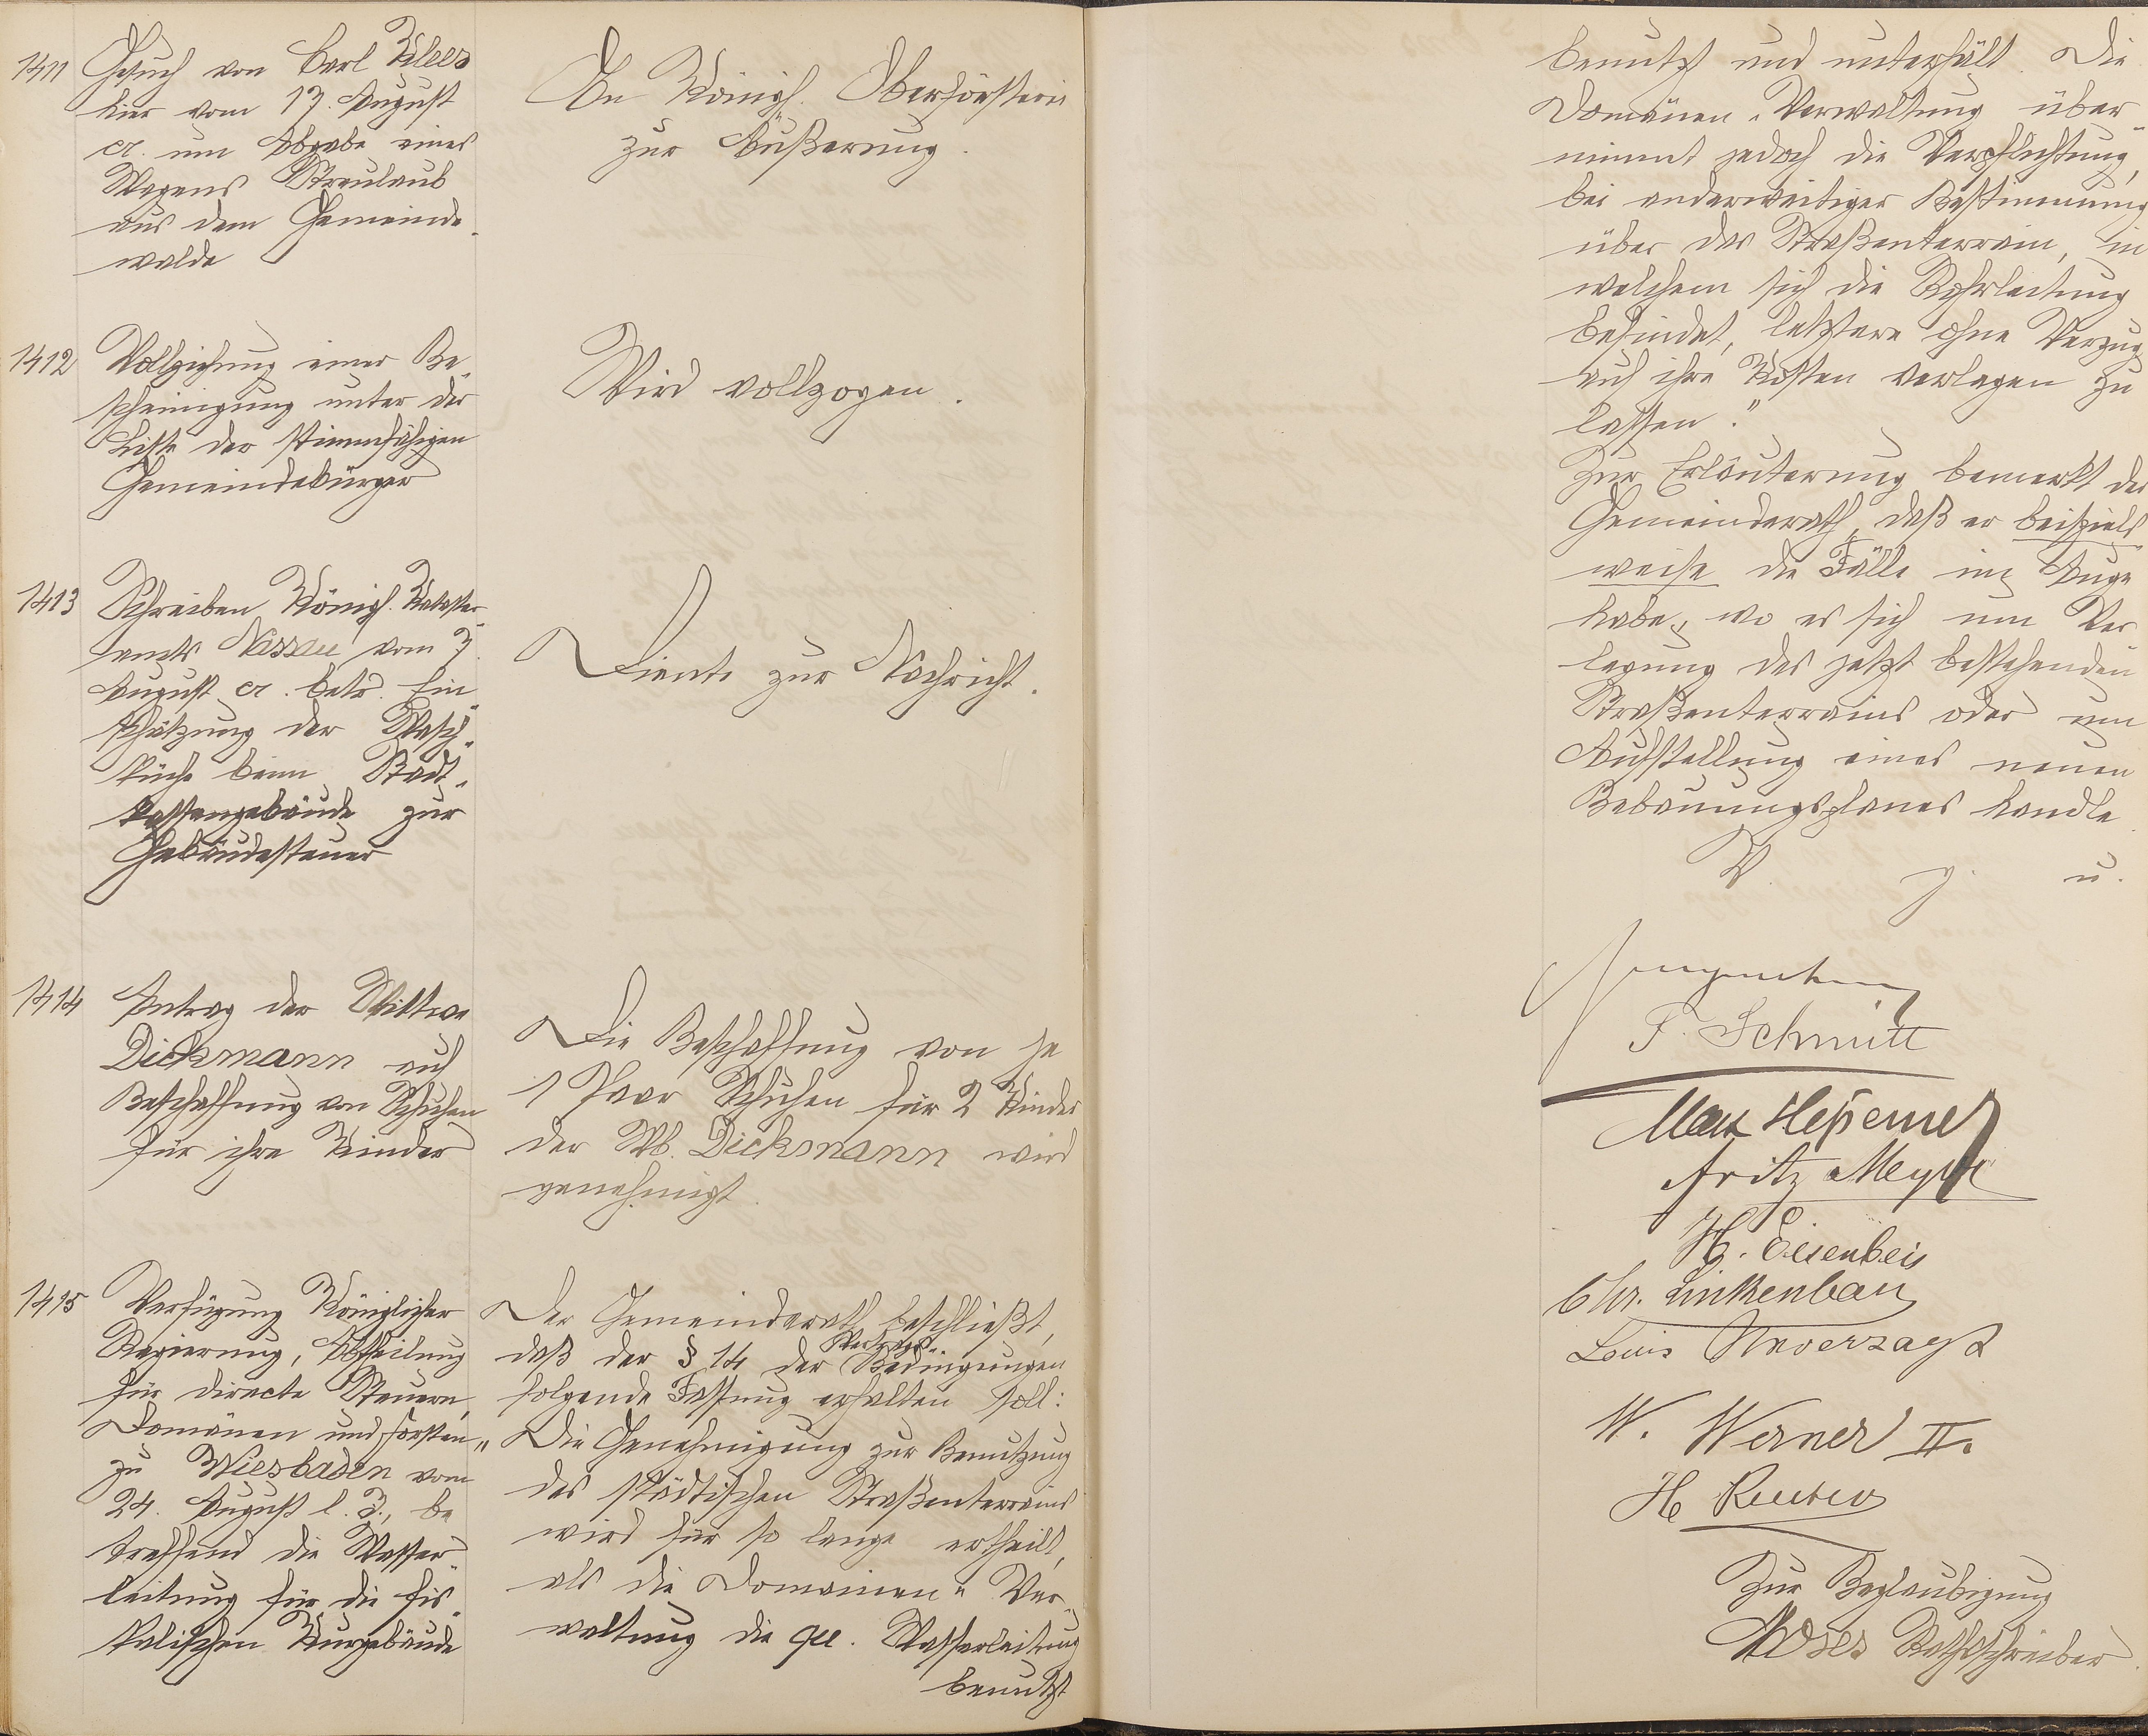 1411
Gesuch von Carl
hier vom 17. August
cr. um Abgabe eines
Wagens Streulaub
aus dem Gemeinde-
walde
An Königl. Oberförsterei
zur Äußerung.
1412
Vollziehung einer Be-
scheinigung unter der
Liste der stimmfähigen
Gemeindebürger
Wird vollzogen.
1413
Schreiben Königl. Kataster-
amts Nassau vom 7.
August cr. betr. Ein-
schätzung der Wasch-
küche beim Stadt-
kassengebäude zur
Gebäudesteuer
Diente zur Nachricht.
1414
Antrag der Wittwe
Dickmann auf
Beschaffung von Schuhen
für ihre Kinder
Die Beschaffung von je
1 Paar Schuhen für 2 Kinder
der Wb. Dickmann wird
genehmigt.
1415
Verfügung Königlicher
Regierung, Abtheilung
für directe Steuern,
Domänen und Forsten
zu Wiesbaden vom
24. August l. J., be-
treffend die Wasser-
leitung für die fis-
kalischen Kurgebäude
Der Gemeinderath beschließt,
daß der § 14 der Vertrags-Bedingungen
folgende Fassung erhalten soll:
"Die Genehmigung zur Benutzung
des städtischen Straßenterrains
wird für so lange ertheilt,
als die Domainen-Ver-
waltung die qu. Wasserleitung
benutzt
benutzt und unterhält. Die
Domänen-Verwaltung über-
nimmt jedoch die Verpflichtung,
bei anderweitiger Bestimmung
über das Straßenterrain, in
welchem sich die Rohrleitung
befindet, letztere ohne Verzug
auf ihre Kosten verlegen zu
lassen."
Zur Erläuterung bemerkt der
Gemeinderath, daß er beispiels-
weise die Fälle im Auge
habe, wo es sich um Ver-
legung des jetzt bestehenden
Straßenterrains oder um
Aufstellung eines neuen
Bebauungsplanes handle.
V. g. u.
F. Schmitt
Max
Fritz Meyer
H. Eisenbeis
Chr. Linkenbach
Louis Unverzagt
W. Werner II.
H Reuter
Zur Beglaubigung
Rathschreiber